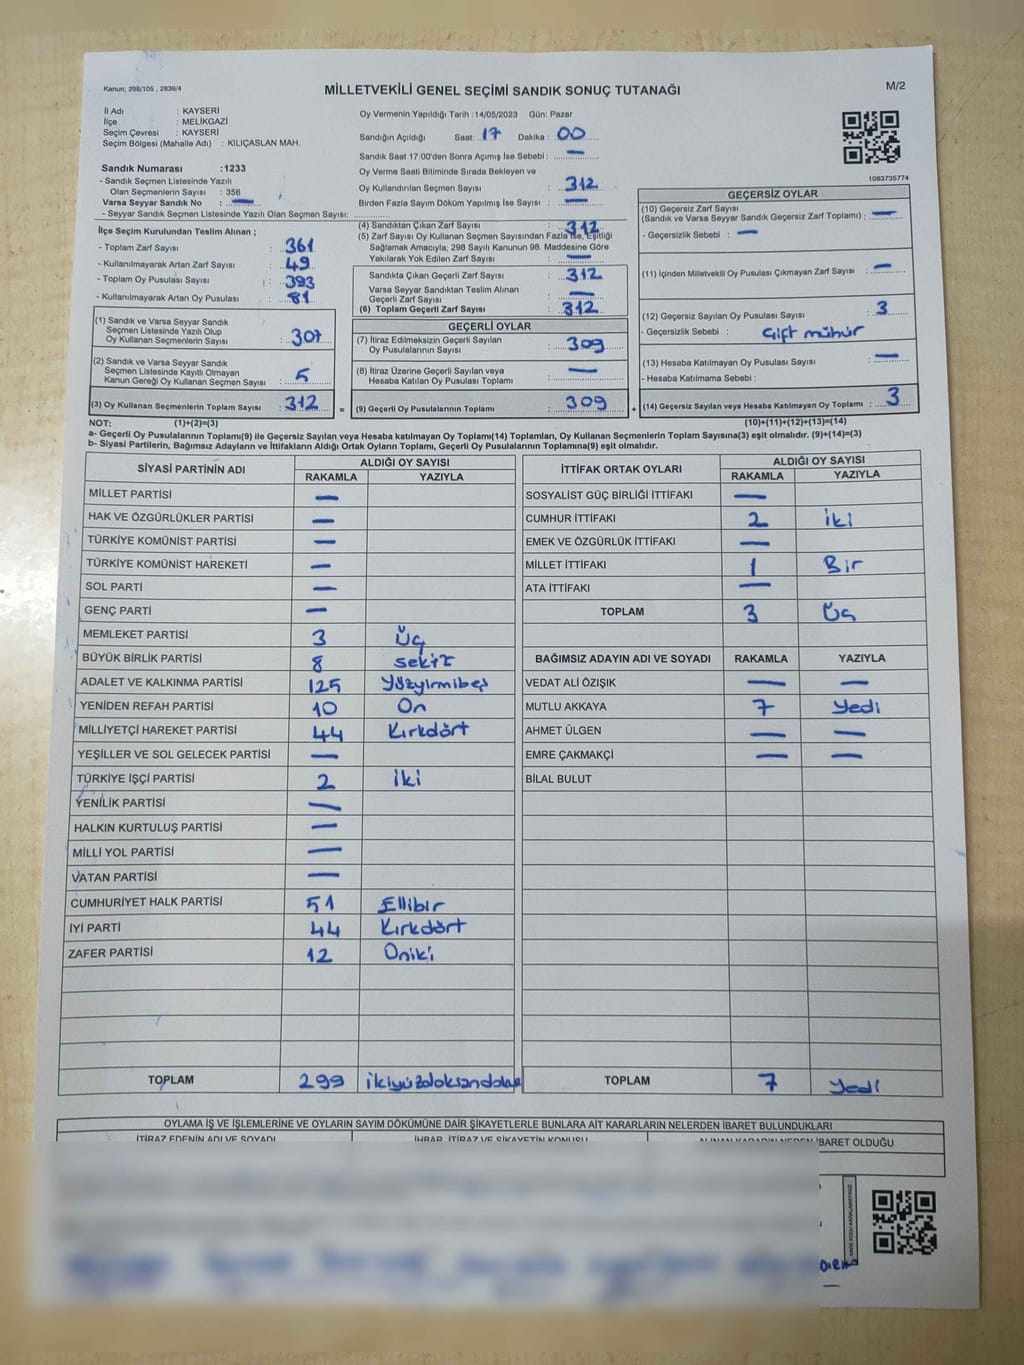 Kanun; 298/105 , 2839/4
MİLLETVEKİLİ GENEL SEÇİMİ SANDIK SONUÇ TUTANAĞI
M/2
İl Adı : KAYSERİ
İlçe : MELİKGAZİ
Seçim Çevresi : KAYSERİ
Seçim Bölgesi (Mahalle Adı) : KILIÇASLAN MAH.
Sandık Numarası :1233
- Sandık Seçmen Listesinde Yazılı
Olan Seçmenlerin Sayısı : 356
Varsa Seyyar Sandık No : —
- Seyyar Sandık Seçmen Listesinde Yazılı Olan Seçmen Sayısı:
İlçe Seçim Kurulundan Teslim Alınan ;
- Toplam Zarf Sayısı : 361
- Kullanılmayarak Artan Zarf Sayısı : 49
- Toplam Oy Pusulası Sayısı : 393
- Kullanılmayarak Artan Oy Pusulası : 81
(1) Sandık ve Varsa Seyyar Sandık
Seçmen Listesinde Yazılı Olup
Oy Kullanan Seçmenlerin Sayısı : 307
(2) Sandık ve Varsa Seyyar Sandık
Seçmen Listesinde Kayıtlı Olmayan
Kanun Gereği Oy Kullanan Seçmen Sayısı : 5
(3) Oy Kullanan Seçmenlerin Toplam Sayısı : 312 =
Oy Vermenin Yapıldığı Tarih : 14/05/2023 Gün: Pazar
Sandığın Açıldığı Saat: 17 Dakika : 00
Sandık Saat 17:00'den Sonra Açımış İse Sebebi : —
Oy Verme Saati Bitiminde Sırada Bekleyen ve
Oy Kullandırılan Seçmen Sayısı : 312
Birden Fazla Sayım Döküm Yapılmış İse Sayısı : —
(4) Sandıktan Çıkan Zarf Sayısı : 312
(5) Zarf Sayısı Oy Kullanan Seçmen Sayısından Fazla İse, Eşitliği
Sağlamak Amacıyla; 298 Sayılı Kanunun 98. Maddesine Göre
Yakılarak Yok Edilen Zarf Sayısı : —
Sandıkta Çıkan Geçerli Zarf Sayısı : 312
Varsa Seyyar Sandıktan Teslim Alınan
Geçerli Zarf Sayısı : —
(6) Toplam Geçerli Zarf Sayısı : 312
GEÇERLİ OYLAR
(7) İtiraz Edilmeksizin Geçerli Sayılan
Oy Pusulalarının Sayısı : 309
(8) İtiraz Üzerine Geçerli Sayılan veya
Hesaba Katılan Oy Pusulası Toplamı : —
(9) Geçerli Oy Pusulalarının Toplamı : 309 +
1083735774
GEÇERSİZ OYLAR
(10) Geçersiz Zarf Sayısı
(Sandık ve Varsa Seyyar Sandık Geçersiz Zarf Toplamı) : —
- Geçersizlik Sebebi : —
(11) İçinden Milletvekili Oy Pusulası Çıkmayan Zarf Sayısı : —
(12) Geçersiz Sayılan Oy Pusulası Sayısı : 3
- Geçersizlik Sebebi : Çift mühür
(13) Hesaba Katılmayan Oy Pusulası Sayısı : —
- Hesaba Katılmama Sebebi :
(14) Geçersiz Sayılan veya Hesaba Katılmayan Oy Toplamı : 3
NOT: (1)+(2)=(3) (10)+(11)+(12)+(13)=(14)
a- Geçerli Oy Pusulalarının Toplamı(9) ile Geçersiz Sayılan veya Hesaba katılmayan Oy Toplamı(14) Toplamları, Oy Kullanan Seçmenlerin Toplam Sayısına(3) eşit olmalıdır. (9)+(14)=(3)
b- Siyasi Partilerin, Bağımsız Adayların ve İttifakların Aldığı Ortak Oyların Toplamı, Geçerli Oy Pusulalarının Toplamına(9) eşit olmalıdır.
SİYASİ PARTİNİN ADI ALDIĞI OY SAYISI
RAKAMLA YAZIYLA
MİLLET PARTİSİ —
HAK VE ÖZGÜRLÜKLER PARTİSİ —
TÜRKİYE KOMÜNİST PARTİSİ —
TÜRKİYE KOMÜNİST HAREKETİ —
SOL PARTİ —
GENÇ PARTİ —
MEMLEKET PARTİSİ 3 Üç
BÜYÜK BİRLİK PARTİSİ 8 sekiz
ADALET VE KALKINMA PARTİSİ 125 Yüzyirmibeş
YENİDEN REFAH PARTİSİ 10 On
MİLLİYETÇİ HAREKET PARTİSİ 44 Kırkdört
YEŞİLLER VE SOL GELECEK PARTİSİ —
TÜRKİYE İŞÇİ PARTİSİ 2 İki
YENİLİK PARTİSİ —
HALKIN KURTULUŞ PARTİSİ —
MİLLİ YOL PARTİSİ —
VATAN PARTİSİ —
CUMHURİYET HALK PARTİSİ 51 Ellibir
İYİ PARTİ 44 Kırkdört
ZAFER PARTİSİ 12 Oniki
TOPLAM 299
İTTİFAK ORTAK OYLARI ALDIĞI OY SAYISI
RAKAMLA YAZIYLA
SOSYALİST GÜÇ BİRLİĞİ İTTİFAKI —
CUMHUR İTTİFAKI 2 İki
EMEK VE ÖZGÜRLÜK İTTİFAKI —
MİLLET İTTİFAKI 1 Bir
ATA İTTİFAKI —
TOPLAM 3 Üç
BAĞIMSIZ ADAYIN ADI VE SOYADI RAKAMLA YAZIYLA
VEDAT ALİ ÖZIŞIK — —
MUTLU AKKAYA 7 Yedi
AHMET ÜLGEN — —
EMRE ÇAKMAKÇİ — —
BİLAL BULUT
TOPLAM 7 Yedi
OYLAMA İŞ VE İŞLEMLERİNE VE OYLARIN SAYIM DÖKÜMÜNE DAİR ŞİKAYETLERLE BUNLARA AİT KARARLARIN NELERDEN İBARET BULUNDUKLARI
İTİRAZ EDENİN ADI VE SOYADI İHBAR, İTİRAZ VE ŞİKAYETİN KONUSU ALINAN KARARIN NEDEN İBARET OLDUĞU